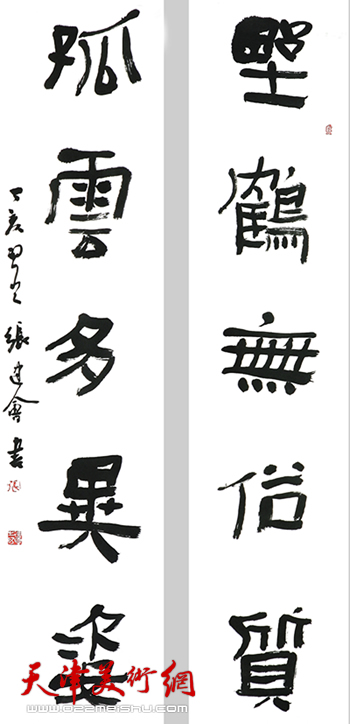 野鶴無俗質
孤雲多異姿
丁亥
張建會書
天津美術網
www.022meishu.com